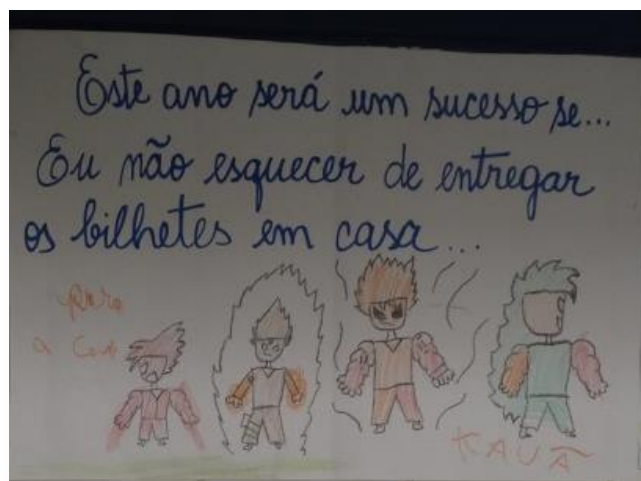 Este ano será um sucesso se...
Eu não esquecer de entregar
os bilhetes em casa...
para
a
KAUÃ